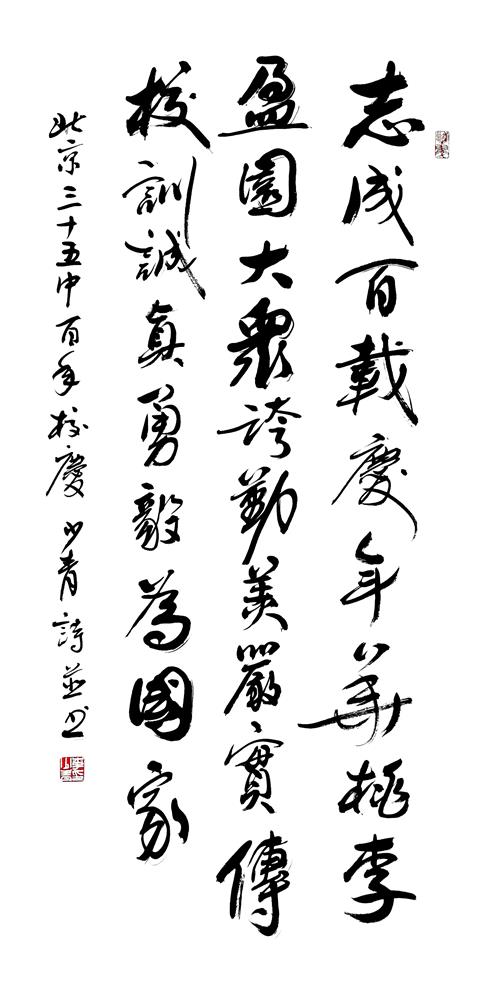 志成百載慶年華桃李
盈園大衆誇勤美嚴實傳
校訓誠真勇毅為國家
北京三十五中百年校慶 少青詩並書